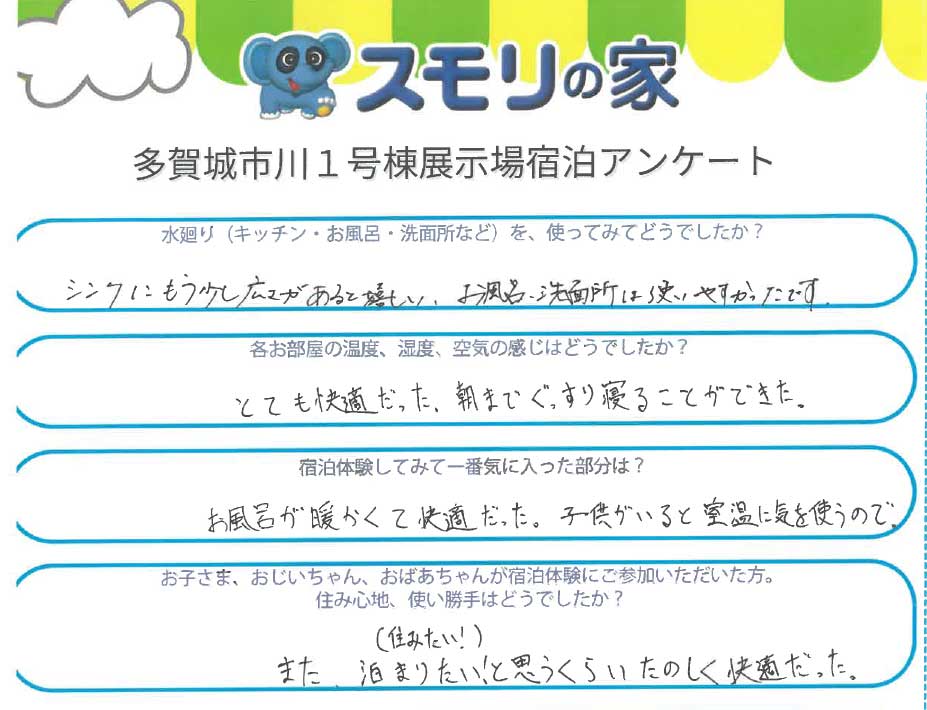 スモリの家
多賀城市川1号棟展示場宿泊アンケート
水廻り（キッチン・お風呂・洗面所など）を、使ってみてどうでしたか？
シンクにもう少し広さがあると嬉しい、お風呂・洗面所は使いやすかったです。
各お部屋の温度、湿度、空気の感じはどうでしたか？
とても快適だった、朝までぐっすり寝ることができた。
宿泊体験してみて一番気に入った部分は？
お風呂が暖かくて快適だった。子供がいると室温に気を使うので。
お子さま、おじいちゃん、おばあちゃんが宿泊体験にご参加いただいた方。
住み心地、使い勝手はどうでしたか？
（住みたい！）
また、泊まりたい！と思うくらいたのしく快適だった。